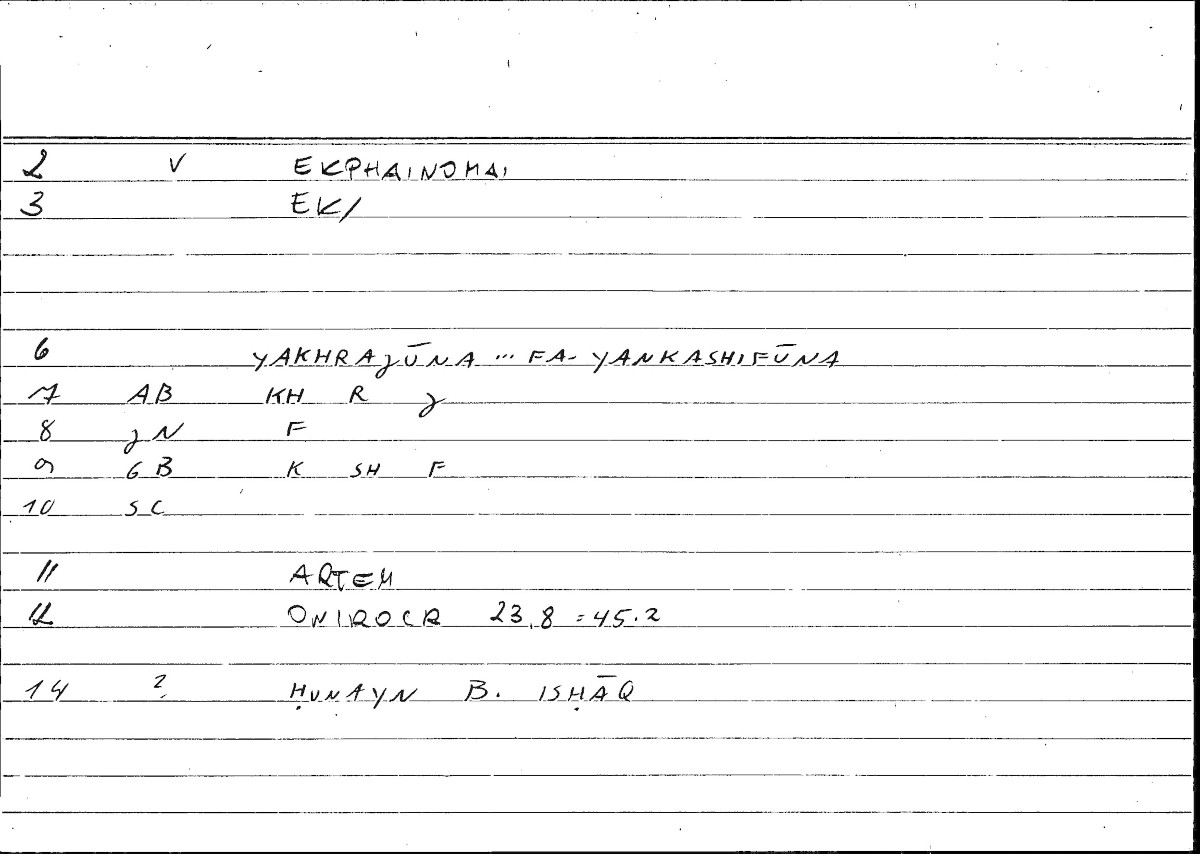 2 V EKPHAINOMAI
3 EK/
6 YAKHRAJŪNA ... FA-YANKASHIFŪNA
7 AB KH R J
8 JN F
9 GB K SH F
10 SC
11 ARTEM
12 ONIROCR 23,8 = 45.2
14 ? ḤUNAYN B. ISḤĀQ